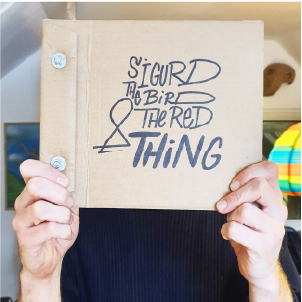 SIGURD
THE BIRD
THE RED
& THING